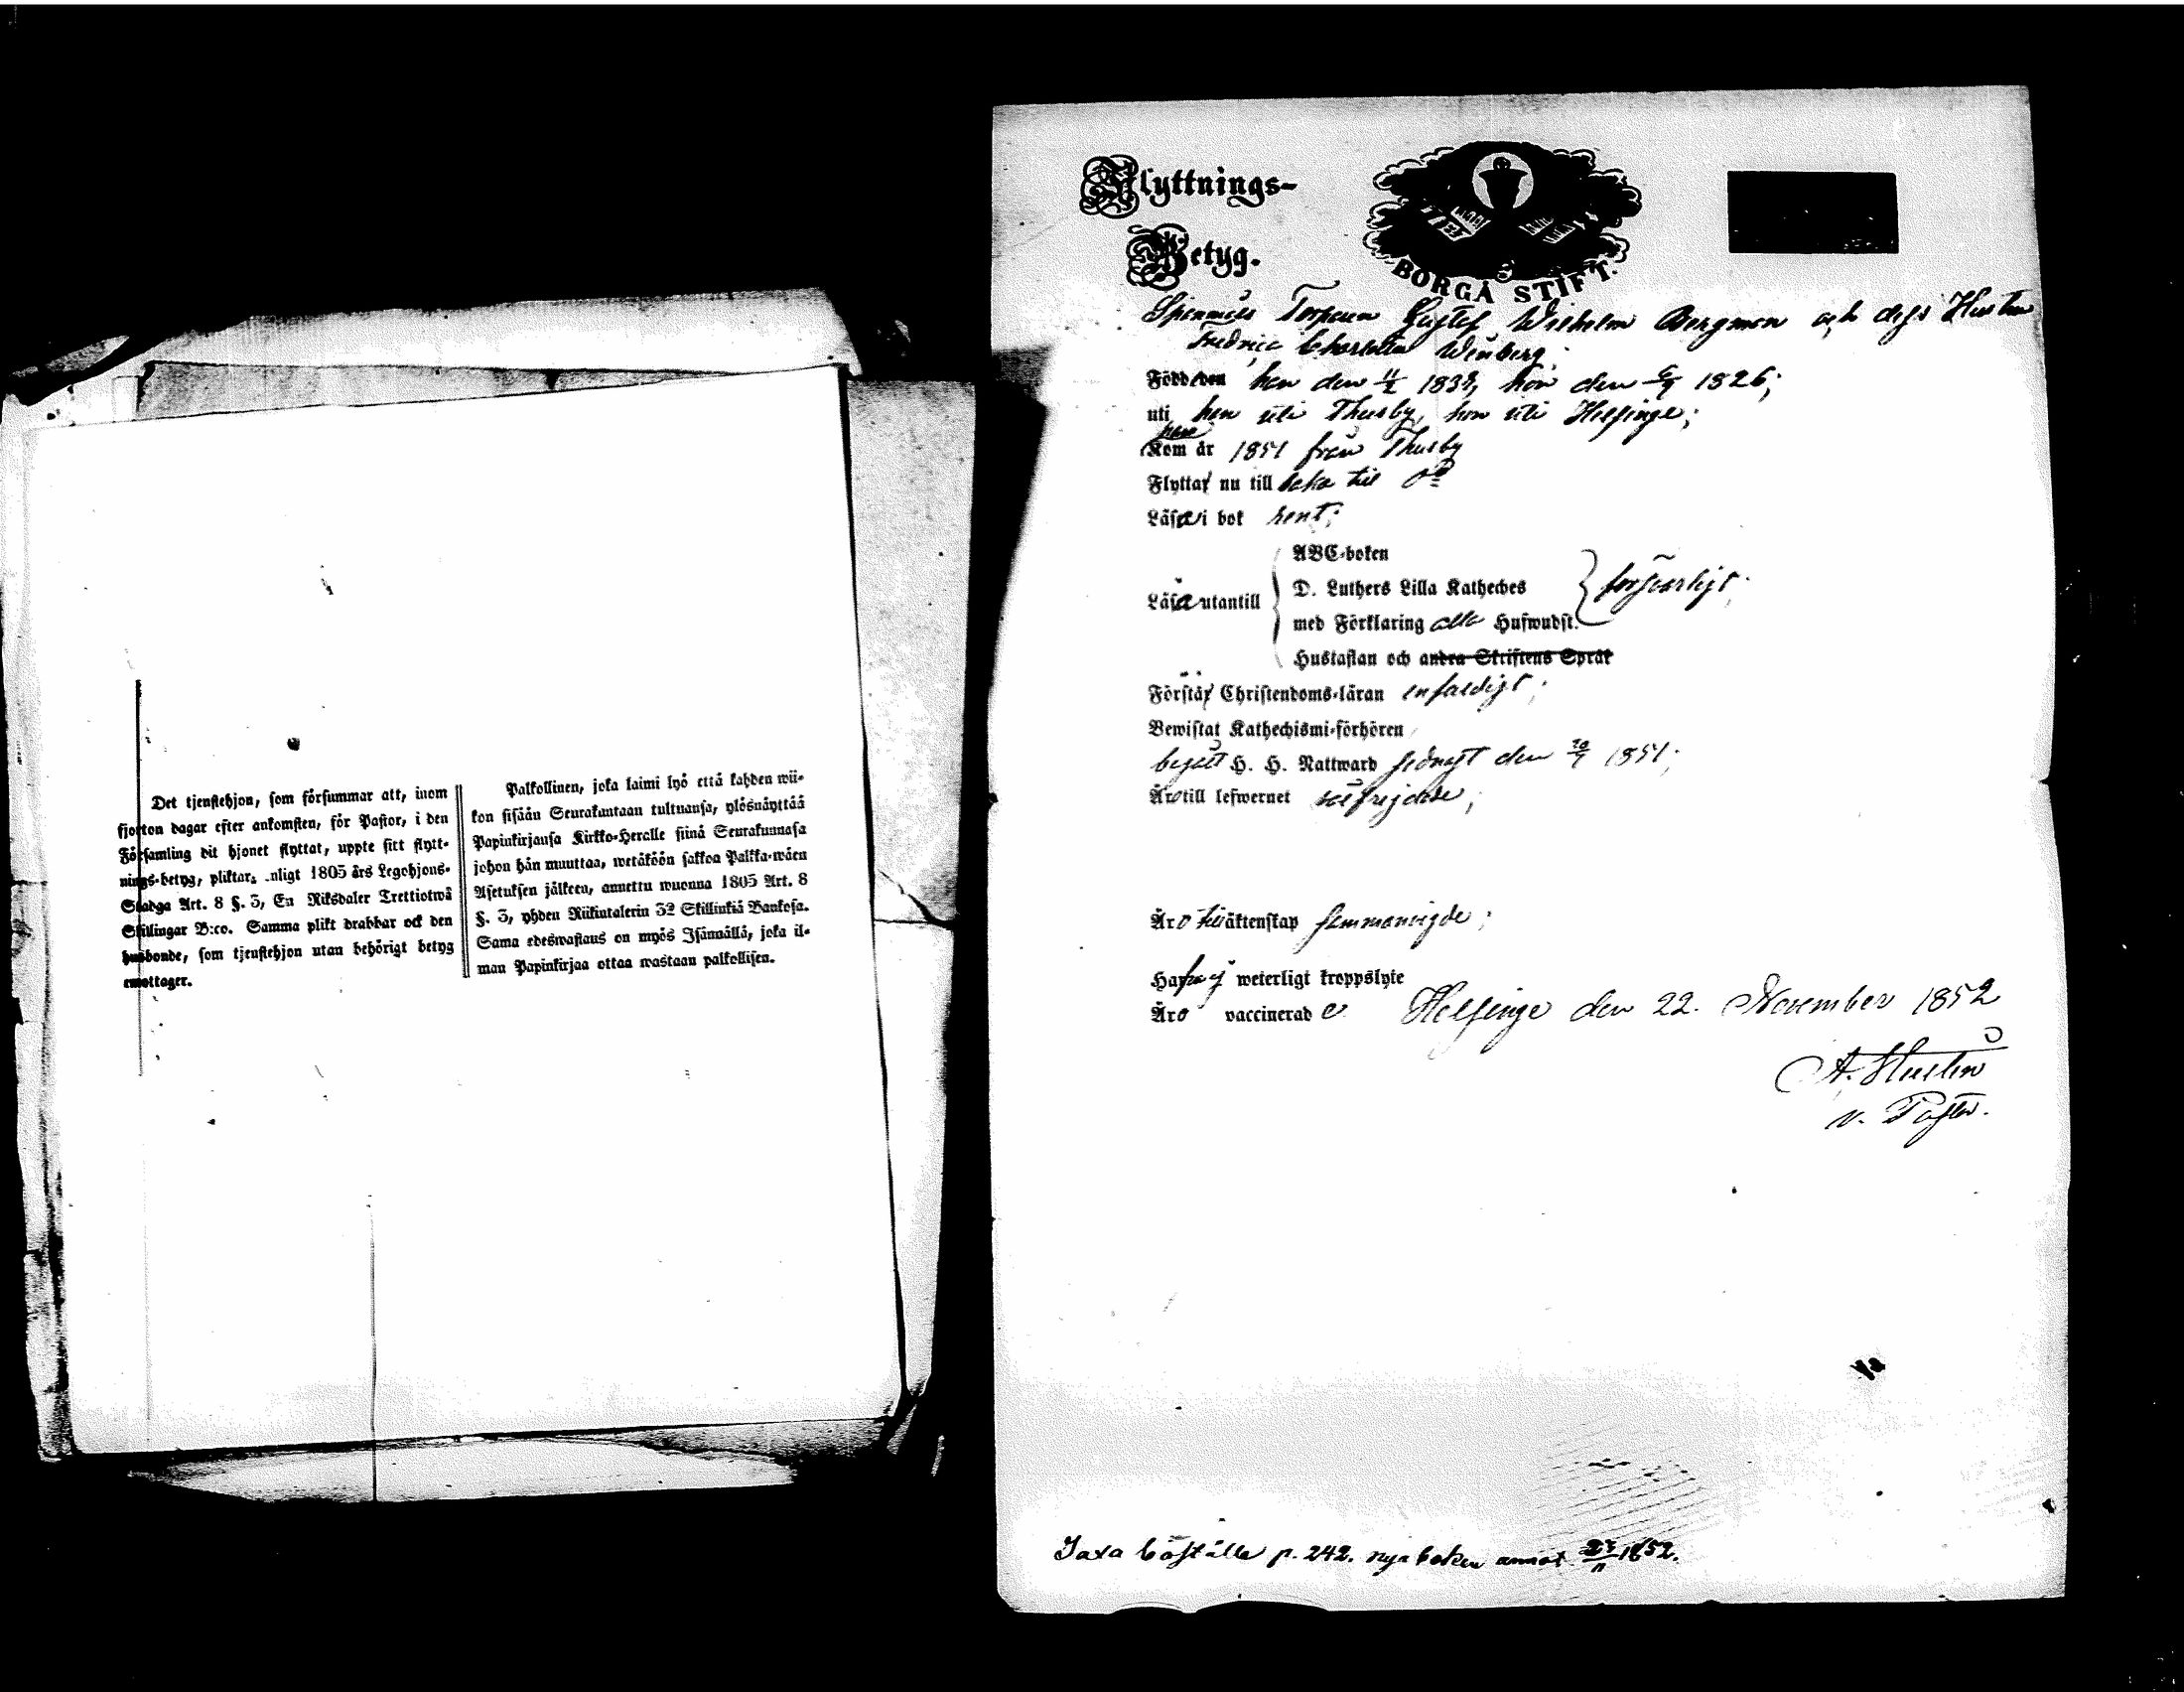 Det tjenstehjon, som försummar att, inom
fjorton dagar efter ankomsten, för Pastor, i den
Församling dit hjonet flyttat, uppte sitt flytt-
nings-betyg, pliktar, enligt 1805 års Legohjons-
Stadga Art. 8 §. 3, En Riksdaler Trettiotwå
Skillingar B:co. Samma plikt drabbar ock den
husbonde, som tjenstehjon utan behörigt betyg
emottager.
Palkollinen, joka laimi lyö että kahden wii-
kon sisään Seurakuntaan tultuansa, ylösnäyttää
Papinkirjansa Kirkko-Heralle siinä Seurakunnasa
johon hän muuttaa, wetäköön sakkoa Palkka-wäen
Asetuksen jälkeen, annettu wuonna 1805 Art. 8
§. 3, yhden Riikintalerin 32 Skillinkiä Bankosa.
Sama edeswastaus on myös Isännällä, joka il-
man Papinkirjaa ottaa wastaan palkollisen.
Flyttnings-
Betyg.
BORGÅ STIFT.
Torparen Gustef Wilhelm Bergman och dess Hustru
Fredrica Charlotta Winberg
Född den han den 11/2 183, hon den 6/9 1826;
uti han uti Thusby, hon uti Helsinge;
Kom år 1851 från Thusby
Flyttar nu till baka till
Läsa i bok rent;
ABC-boken
Läsa utantill D. Luthers Lilla Kateches försvarligt;
med Förklaring alla Hufwudst.
Hustaflan och andra Skriftens Språk
Förstår Christendoms-läran enfaldigt;
Bewistat Kathechismi-förhören
begått H. H. Nattward sednast den 1851;
Äro till lefwernet välfrejdade;
Äro till äktenskap sammanvigde;
Hafva ej weterligt kroppslyte
Äro vaccinerade Helsinge den 22. November 1852
A. Husten
v. Pastor.
Jaxa boställe p. 242. nya boken annot. 27/11 1852.